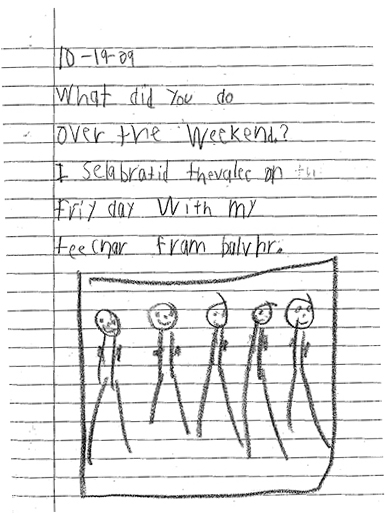 10-19-09
What did you do
over the weekend?
I selabratid thevalee on
friy day with my
teechar fram balvhr.